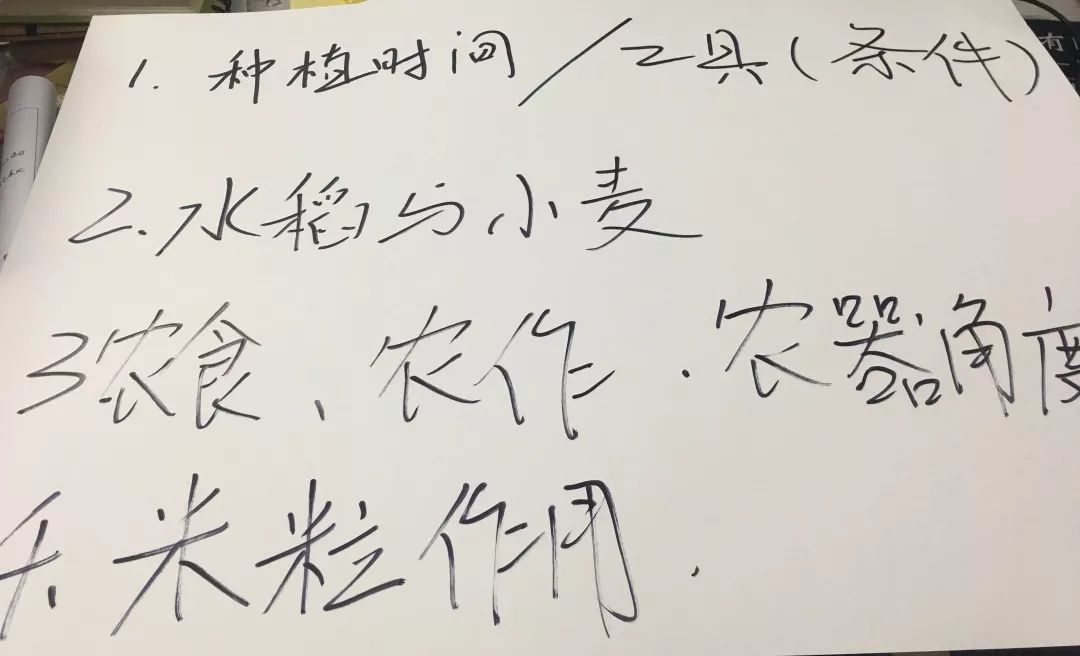 1. 种植时间/工具(条件)
2.水稻与小麦
3农食、农作.农器角度
4.米粒作用.
有